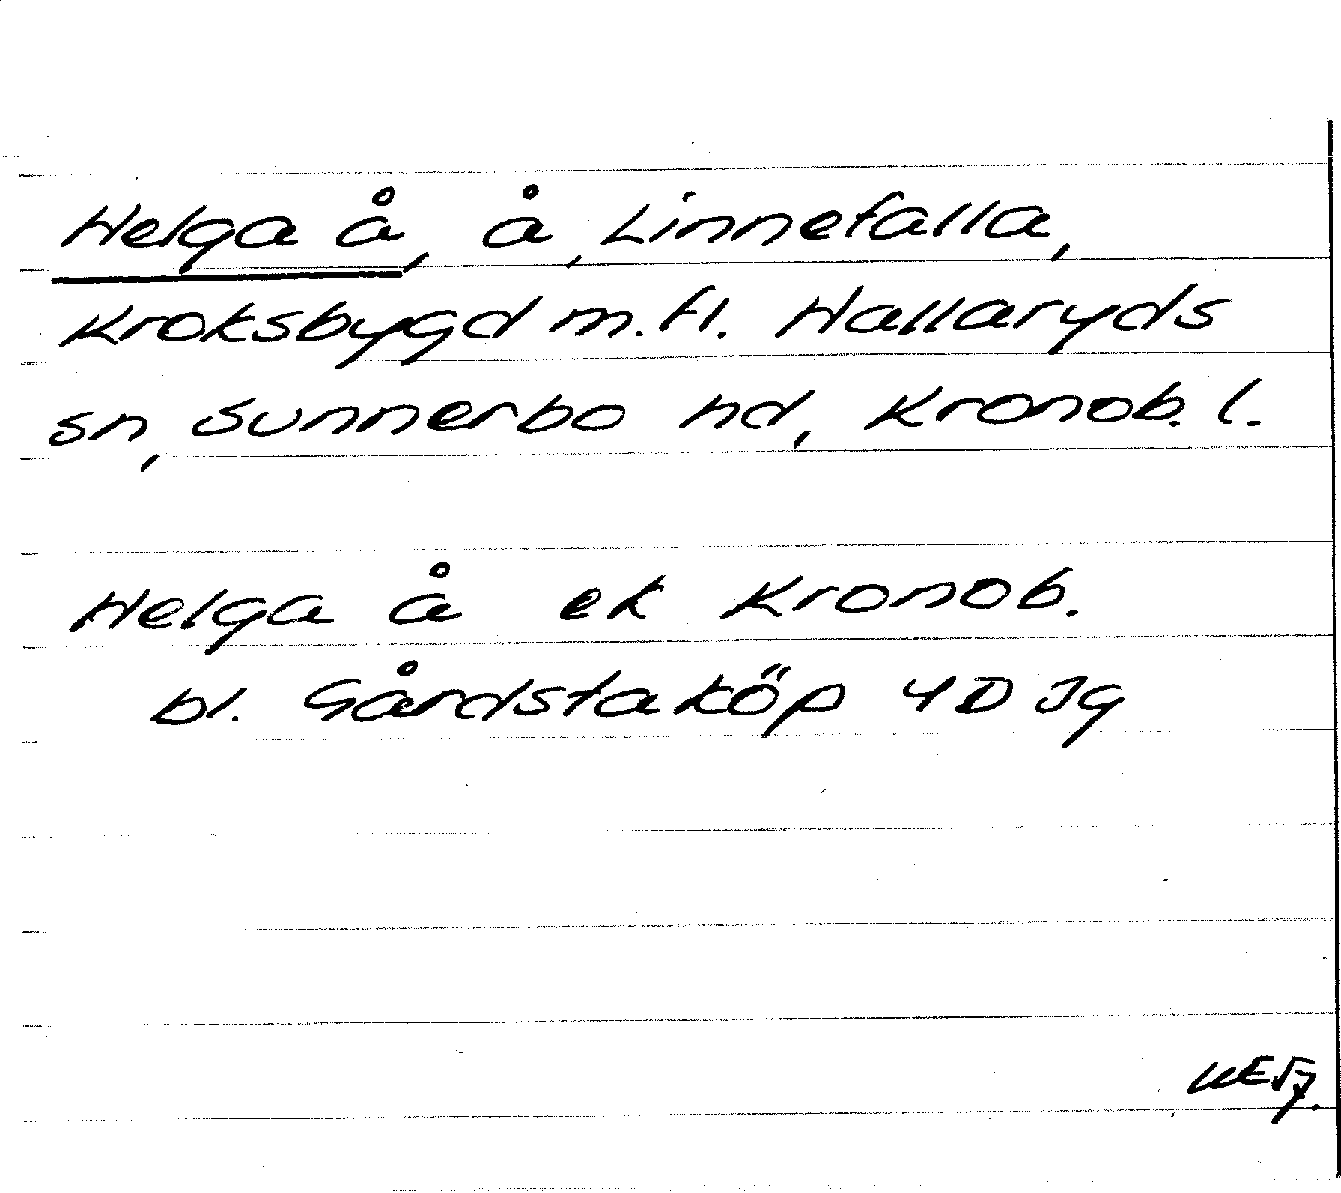 Helga å, å, Linnefalla,
Kroksbygd m.fl. Hallaryds
sn, Sunnerbo hd, Kronob. l.
Helga å ek Kronob.
bl. Gårdstaköp 4D Jg